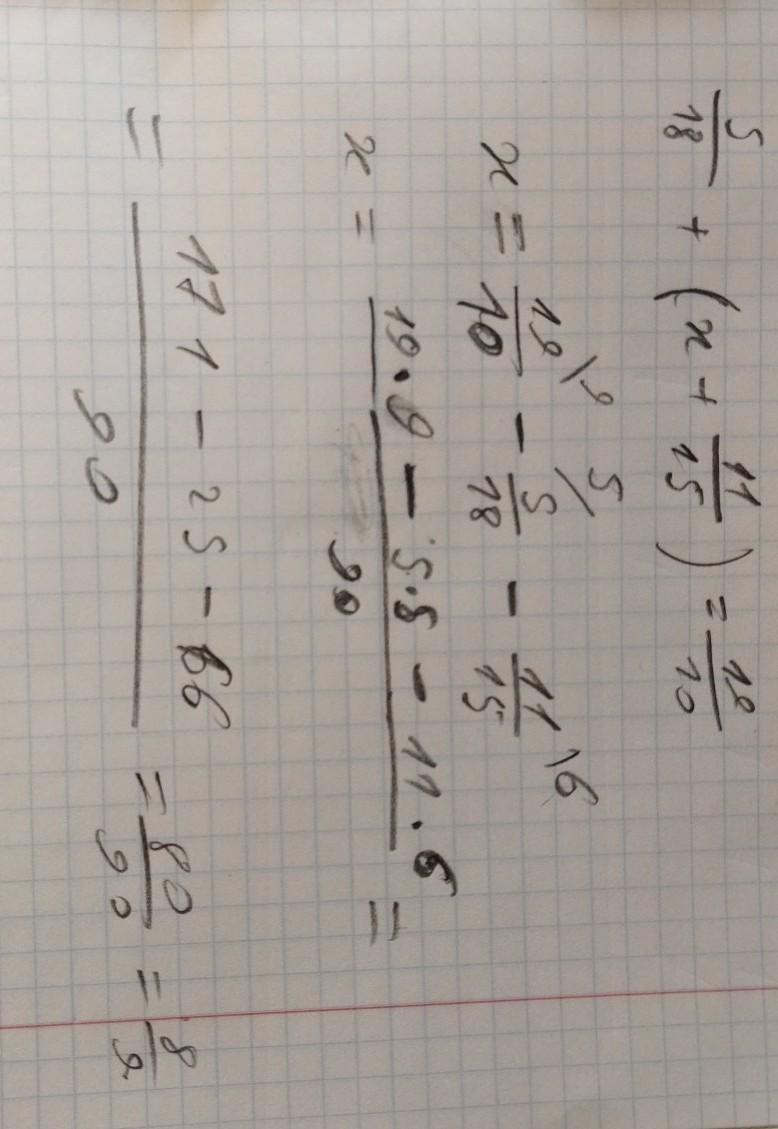 5/18 + (x + 11/15) = 19/10
x = 19/10 \9 - 5/18 /5 - 11/15 \6
x = (19·9 - 5·5 - 11·6)/90 =
= (171 - 25 - 66)/90 = 80/90 = 8/9